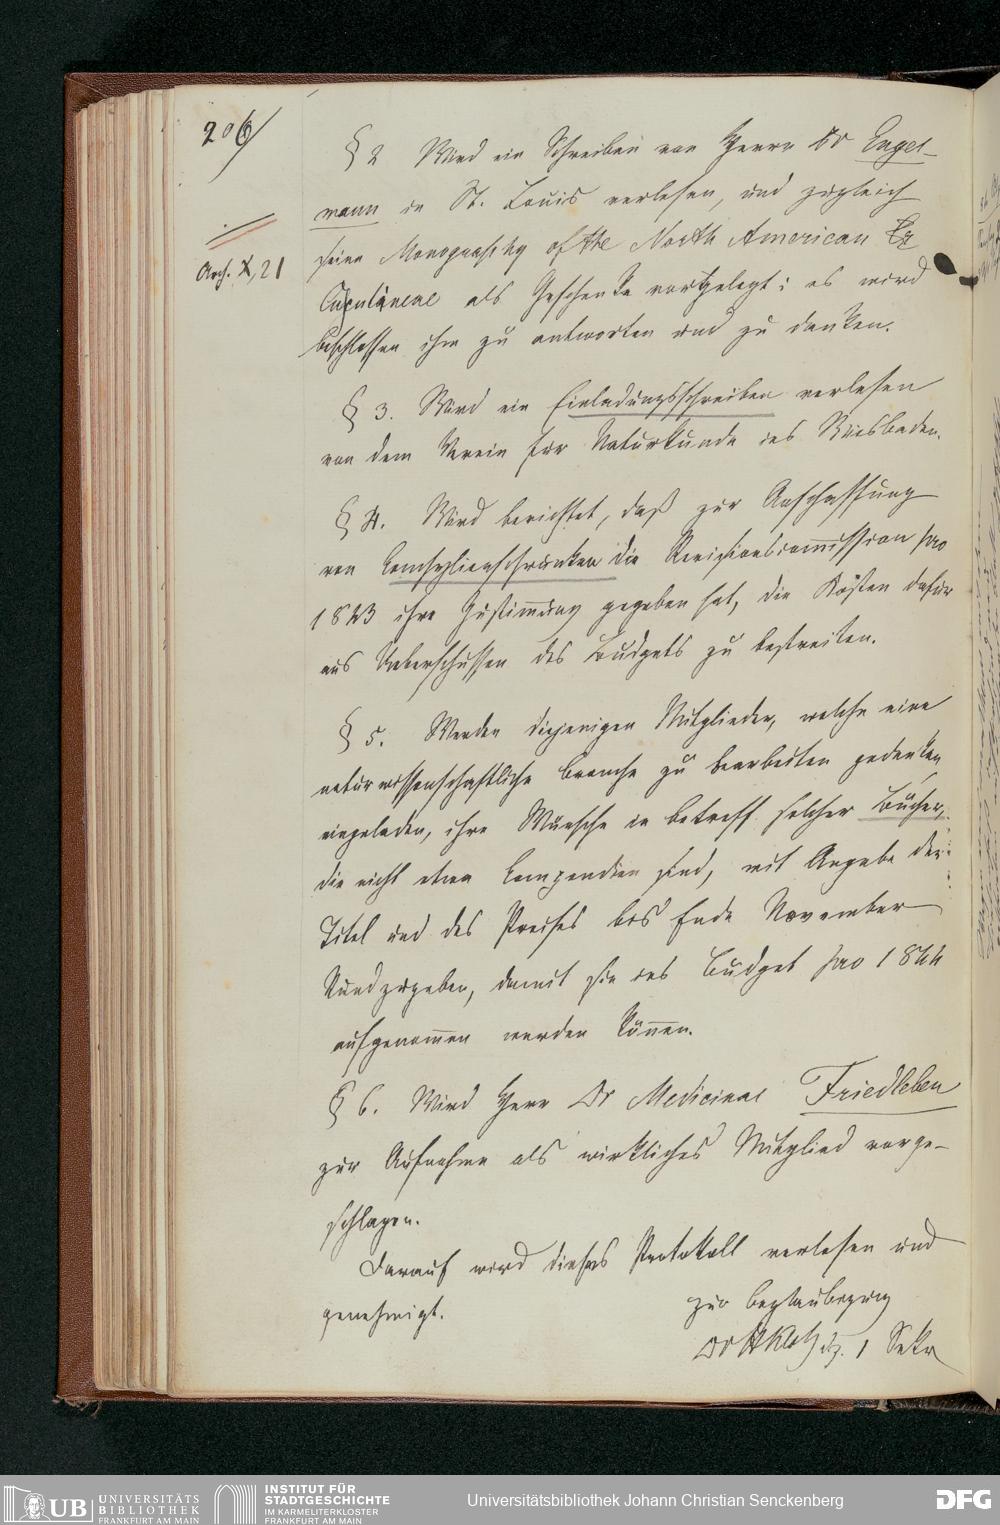 206/
§ 2 Wird ein Schreiben von Herrn Dr Engel-
mann in St. Louis verlesen, und zugleich
Arch. X, 21
seine Monography of the North American
als Geschenke vorgelegt; es wird
beschlossen ihm zu antworten und zu danken.
§ 3. Wird ein Einladungsschreiben verlesen
von dem Verein für Naturkunde aus Wiesbaden.
§ 4. Wird berichtet, daß zur Anschaffung
von Conchylienschränken die Revisionscommission pro
1843 ihre Zustimmung gegeben hat, die Kosten dafür
aus Ueberschüssen des Budgets zu bestreiten.
§ 5. Werden diejenigen Mitglieder, welche eine
naturwissenschaftliche Branche zu bearbeiten gedenken
eingeladen, ihre Wünsche in betreff solcher Bücher,
die nicht etwa Compendien sind, mit Angabe der
Titel und des Preises bis Ende November
kundzugeben, damit sie ins Budget pro 1844
aufgenommen werden können.
§ 6. Wird Herr Dr Medicinae Friedleben
zur Aufnahme als wirkliches Mitglied vorge-
schlagen.
Darauf wird dieses Protokoll verlesen und
genehmigt.
zur Beglaubigung
Dr 1 Sekr
UB UNIVERSITÄTS
BIBLIOTHEK
FRANKFURT AM MAIN
INSTITUT FÜR
STADTGESCHICHTE
IM KARMELITERKLOSTER
FRANKFURT AM MAIN
Universitätsbibliothek Johann Christian Senckenberg
DFG